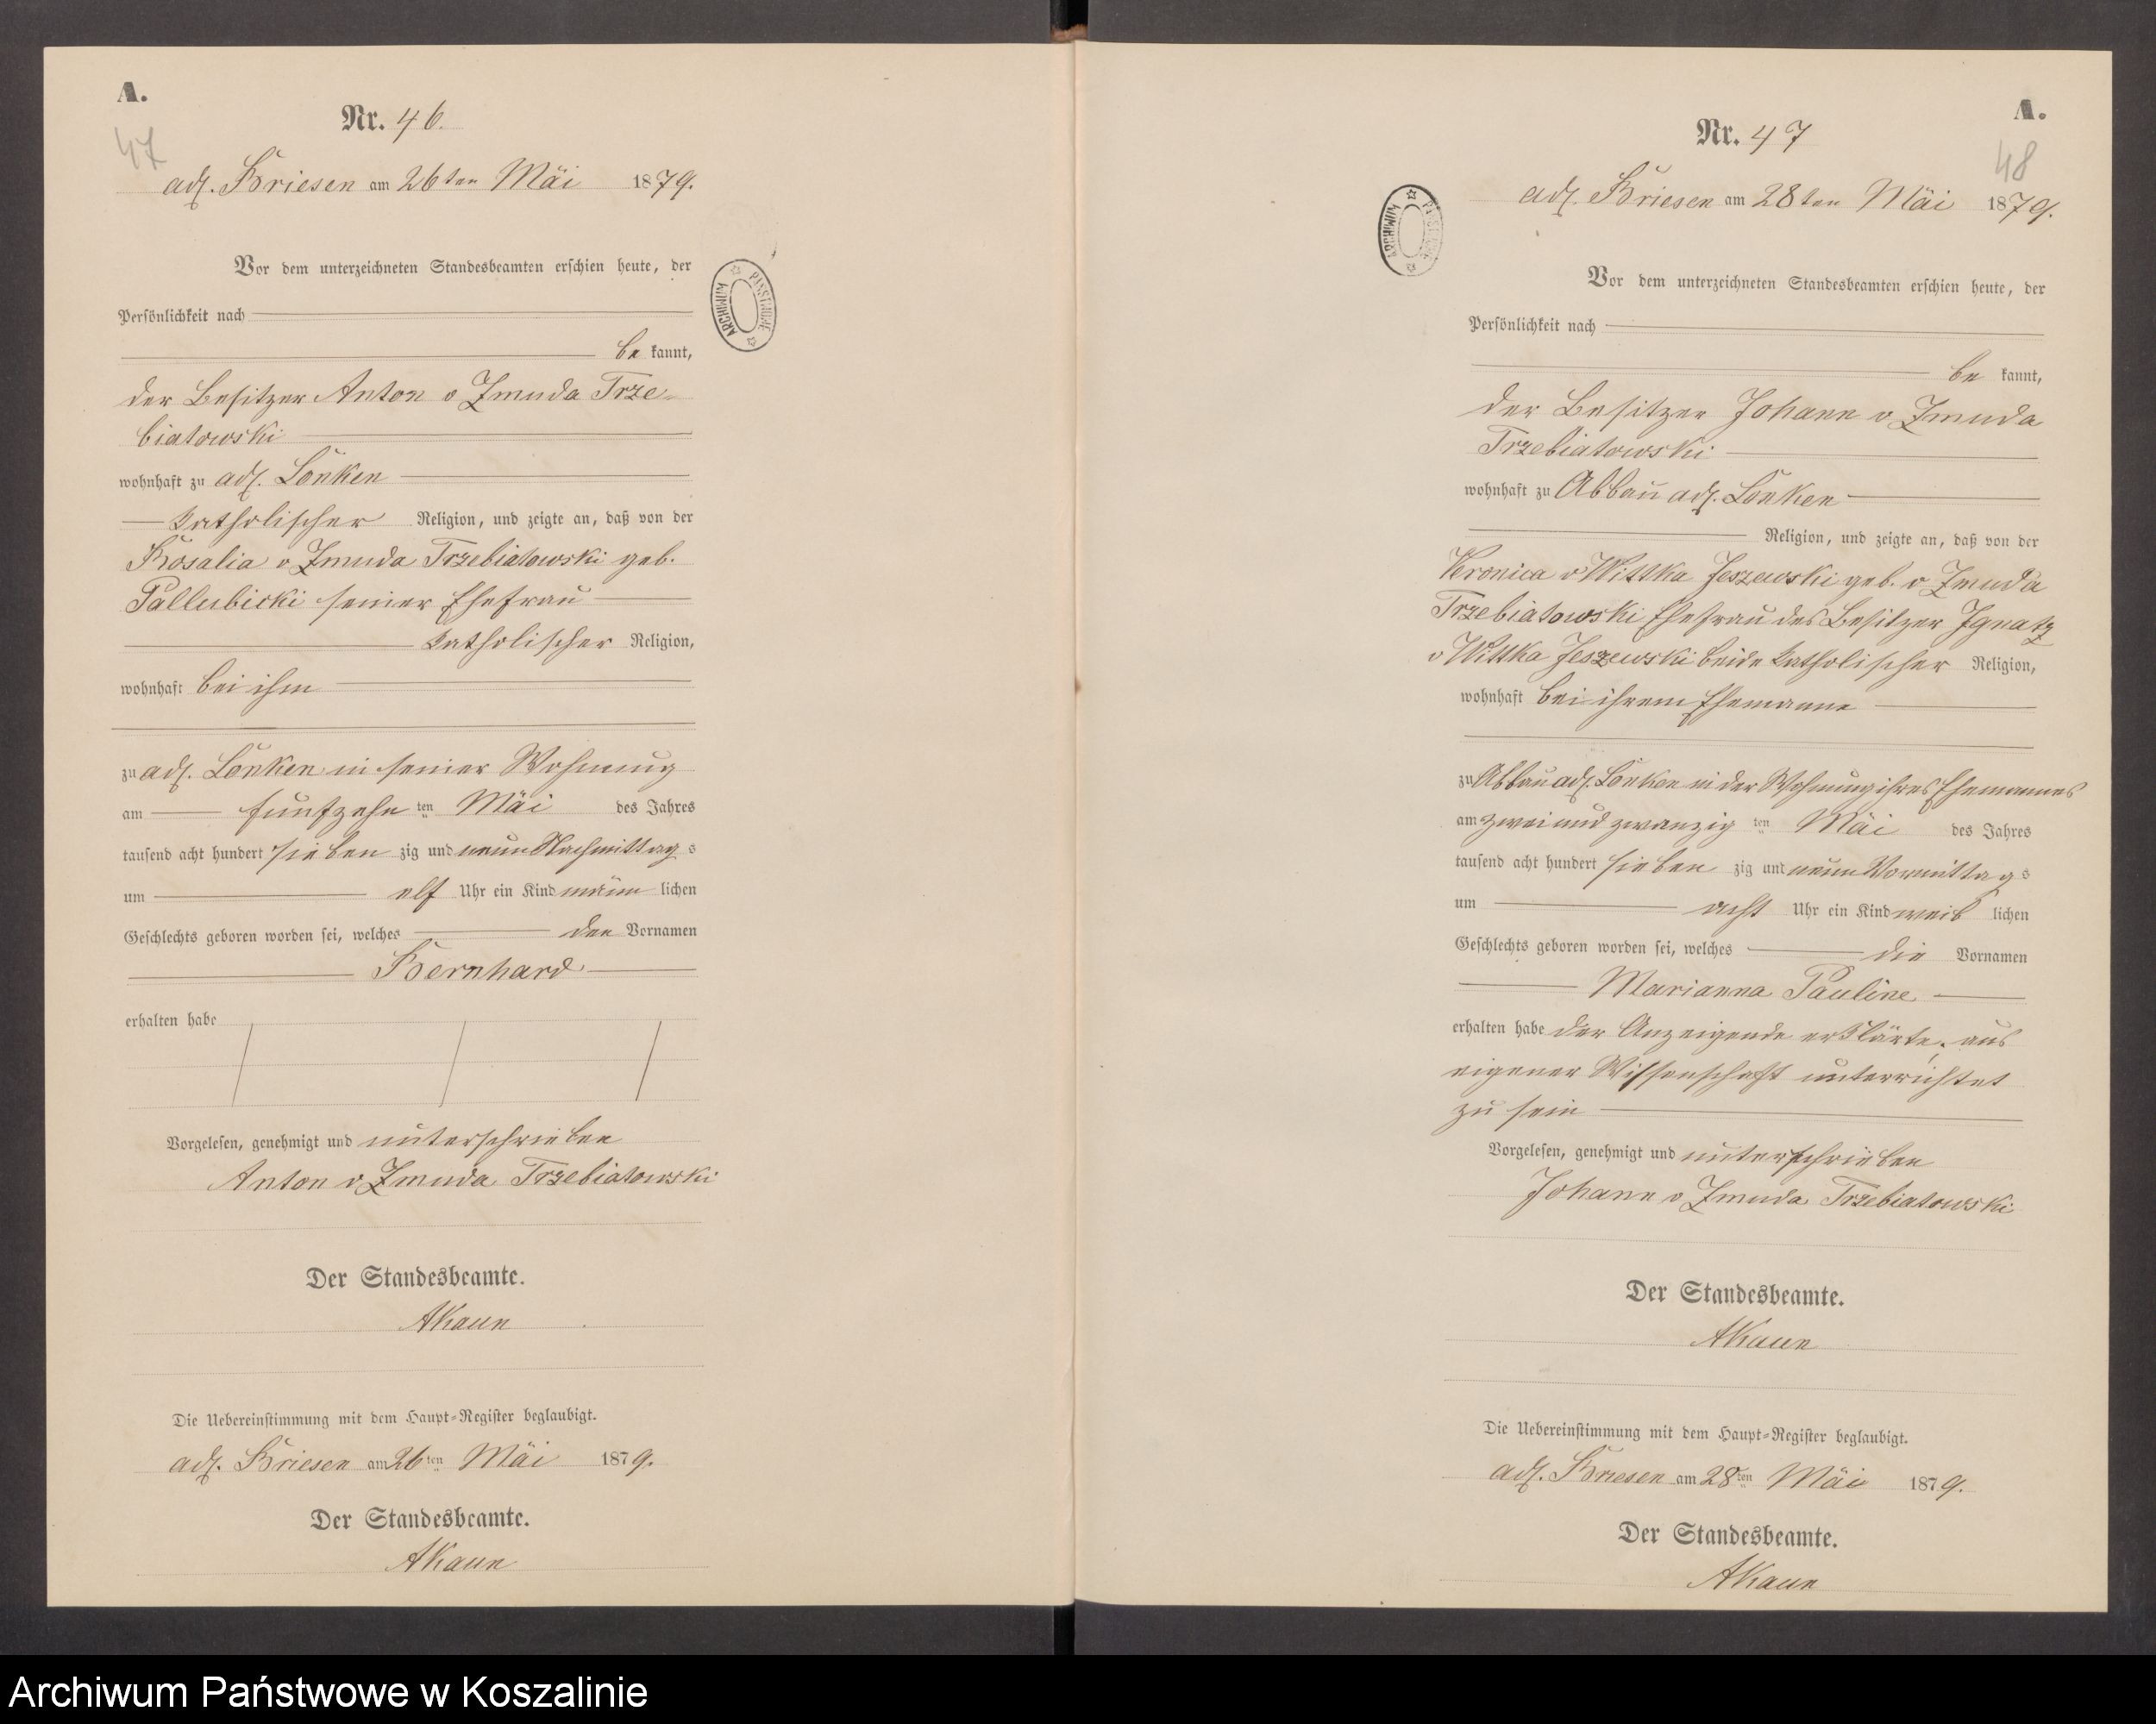 A.
47
Nr. 46.
adl. Briesen am 26ten Mai 1879.
Vor dem unterzeichneten Standesbeamten erschien heute, der
Persönlichkeit nach
be kannt,
der Besitzer Anton v Zmuda Trze-
biatowski
wohnhaft zu adl. Lonken
katholischer Religion, und zeigte an, daß von der
Rosalia v Zmuda Trzebiatowski geb.
Pallubicki seiner Ehefrau
katholischer Religion,
wohnhaft bei ihm
zu adl. Lonken in seiner Wohnung
am funfzehn ten Mai des Jahres
tausend acht hundert sieben zig und neun Nachmittag s
um elf Uhr ein Kind männ lichen
Geschlechts geboren worden sei, welches den Vornamen
Bernhard
erhalten habe
Vorgelesen, genehmigt und unterschrieben
Anton v Zmuda Trzebiatowski
Der Standesbeamte.
AKaun
Die Uebereinstimmung mit dem Haupt-Register beglaubigt.
adl. Briesen am 26ten Mai 1879.
Der Standesbeamte.
AKaun
ARCHIWUM PAŃSTWOWE
A.
48
Nr. 47
adl. Briesen am 28ten Mai 1879.
ARCHIWUM PAŃSTWOWE
Vor dem unterzeichneten Standesbeamten erschien heute, der
Persönlichkeit nach
be kannt,
der Besitzer Johann v Zmuda
Trzebiatowski
wohnhaft zu Abbau adl. Lonken
Religion, und zeigte an, daß von der
Veronica v Wittka Jeszewski geb. v Zmuda
Trzebiatowski Ehefrau des Besitzer Ignatz
v Wittka Jeszewski beide katholischer Religion,
wohnhaft bei ihrem Ehemanne
zu Abbau adl. Lonken in der Wohnung ihres Ehemannes
am zwei und zwanzig ten Mai des Jahres
tausend acht hundert sieben zig und neun Vormittag s
um acht Uhr ein Kind weib lichen
Geschlechts geboren worden sei, welches die Vornamen
Marianna Pauline
erhalten habe der Anzeigende erklärte, aus
eigener Wissenschaft unterrichtet
zu sein
Vorgelesen, genehmigt und unterschrieben
Johann v Zmuda Trzebiatowski
Der Standesbeamte.
AKaun
Die Uebereinstimmung mit dem Haupt-Register beglaubigt.
adl. Briesen am 28ten Mai 1879.
Der Standesbeamte.
AKaun
Archiwum Państwowe w Koszalinie